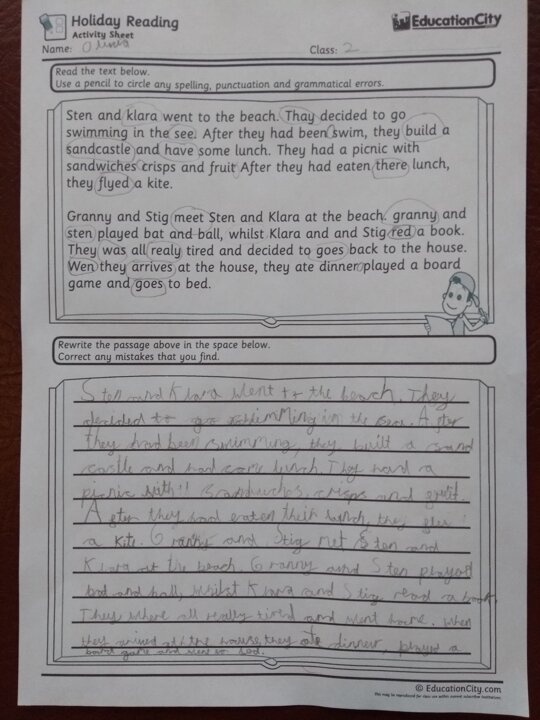 Holiday Reading
Activity Sheet
EducationCity
Name:
Class: 2
Read the text below.
Use a pencil to circle any spelling, punctuation and grammatical errors.
Sten and klara went to the beach. Thay decided to go
swimming in the see. After they had been swim, they build a
sandcastle and have some lunch. They had a picnic with
sandwiches crisps and fruit After they had eaten there lunch,
they flyed a kite.
Granny and Stig meet Sten and Klara at the beach. granny and
sten played bat and ball, whilst Klara and and Stig red a book.
They was all realy tired and decided to goes back to the house.
Wen they arrives at the house, they ate dinner played a board
game and goes to bed.
Rewrite the passage above in the space below.
Correct any mistakes that you find.
Sten and Klara went to the beach. They
decided to go swimming in the sea. After
they had been swimming, they built a sand
castle and had some lunch. They had a
picnic with sandwiches, crisps and fruit.
After they had eaten their lunch, they flew
a kite. Granny and Stig met Sten and
Klara at the beach. Granny and Sten played
bat and ball, whilst Klara and Stig read a book.
They where all really tired and went home. When
they arrived at the house, they ate dinner, played a
board game and went to bed.
© EducationCity.com
This may be reproduced for class use within current subscriber institutions